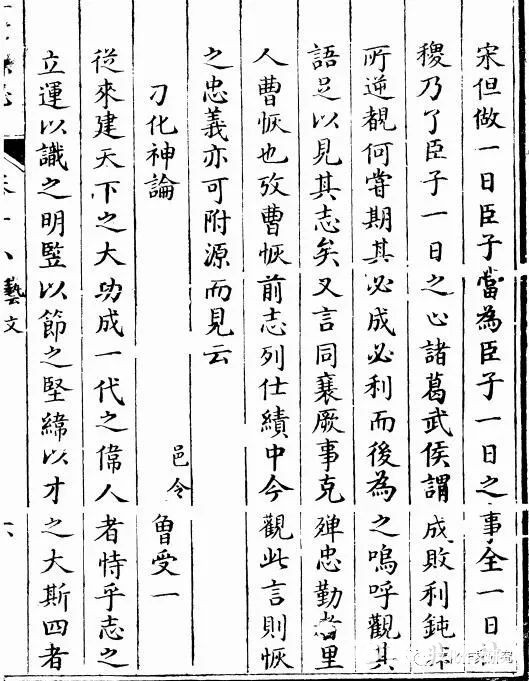 宋但做一日臣子當為臣子一日之事全一日
稷乃了臣子一日之心諸葛武侯謂成敗利鈍非
所逆覩何嘗期其必成必利而後為之嗚呼觀其
語足以見其志矣又言同襄厥事克殫忠勤者里
人曹恢也攷曹恢前志列仕績中今觀此言則恢
之忠義亦可附源而見云
刁化神論
邑令 魯受一
從來建天下之大功成一代之偉人者恃乎志之
立運以識之明監以節之堅緯以才之大斯四者
藝文